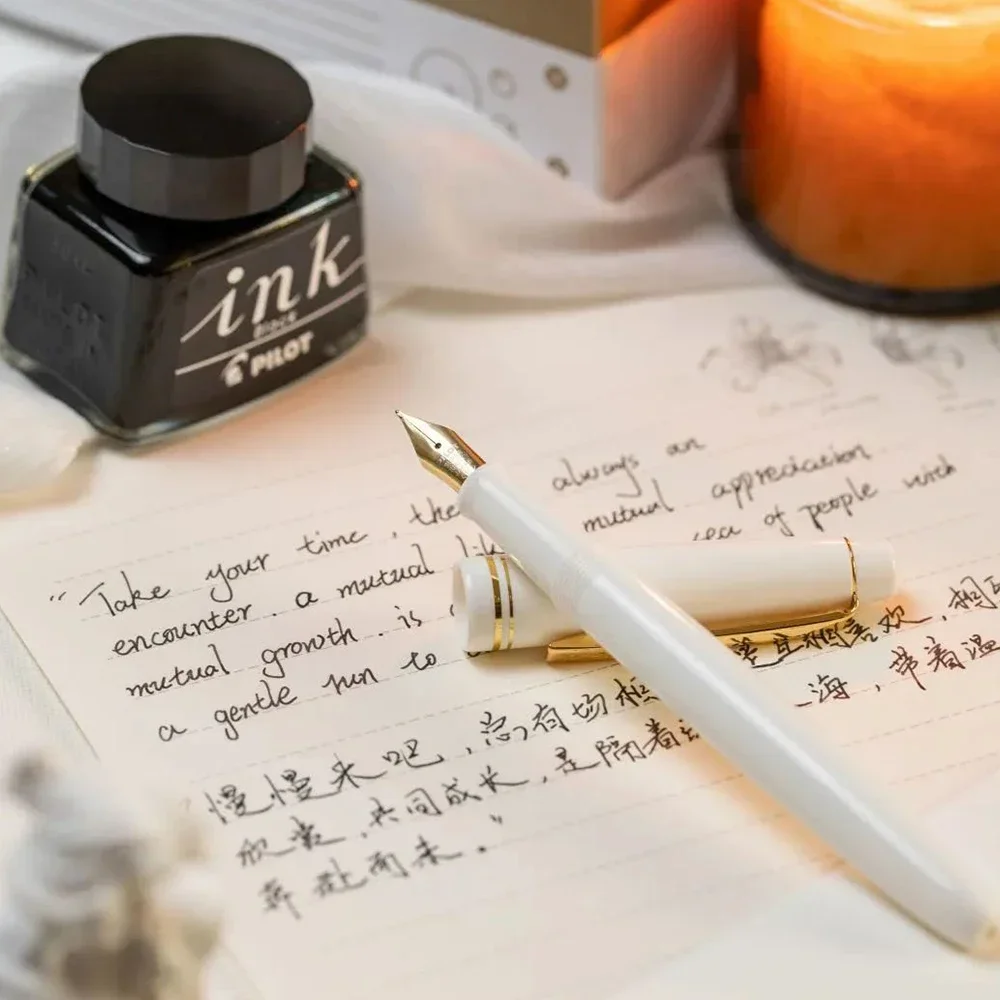 ink
Black
PILOT
"Take your time, the always an
encounter. a mutual mutual appreciation
mutual growth. is sea of people with
a gentle run to
慢慢来吧，总有场相 并且相喜欢，相互
欣赏，共同成长，是隔着 海，带着温
奔赴而来。"